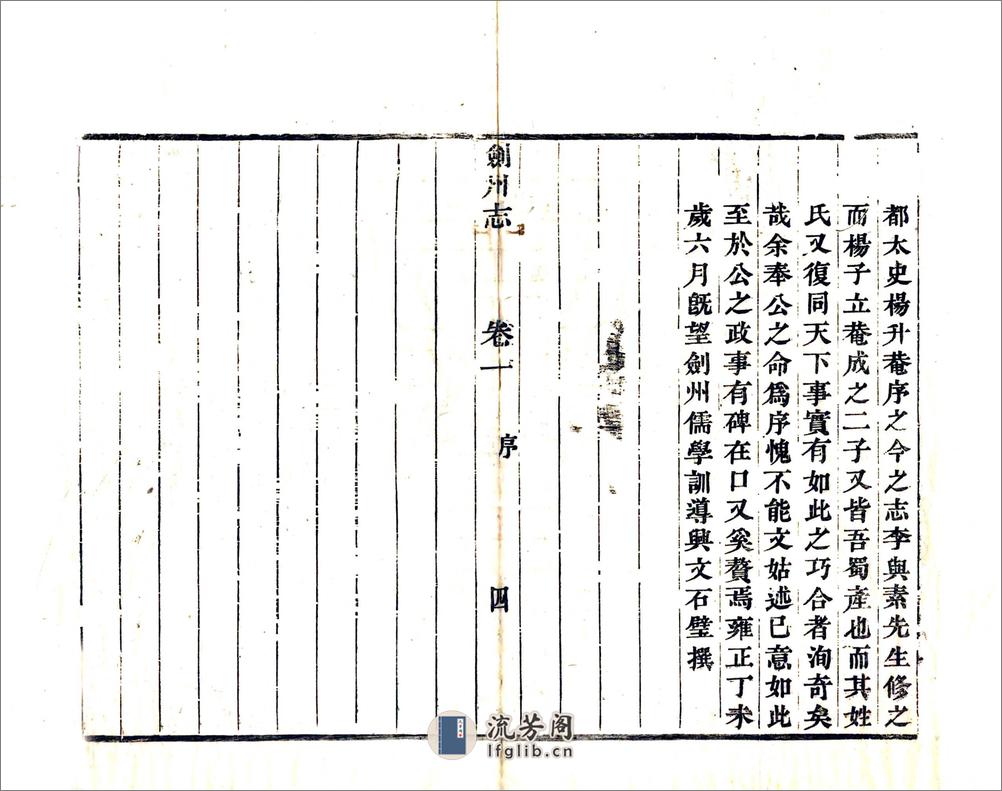 都太史楊升菴序之今之志李與素先生修之
而楊子立菴成之二子又皆吾蜀產也而其姓
氏又復同天下事實有如此之巧合者洵奇矣
哉余奉公之命爲序愧不能文姑述已意如此
至於公之政事有碑在口又奚贅焉雍正丁未
歲六月既望劍州儒學訓導興文石璧撰
劍州志 卷一 序 四
流芳阁
lfglib.cn